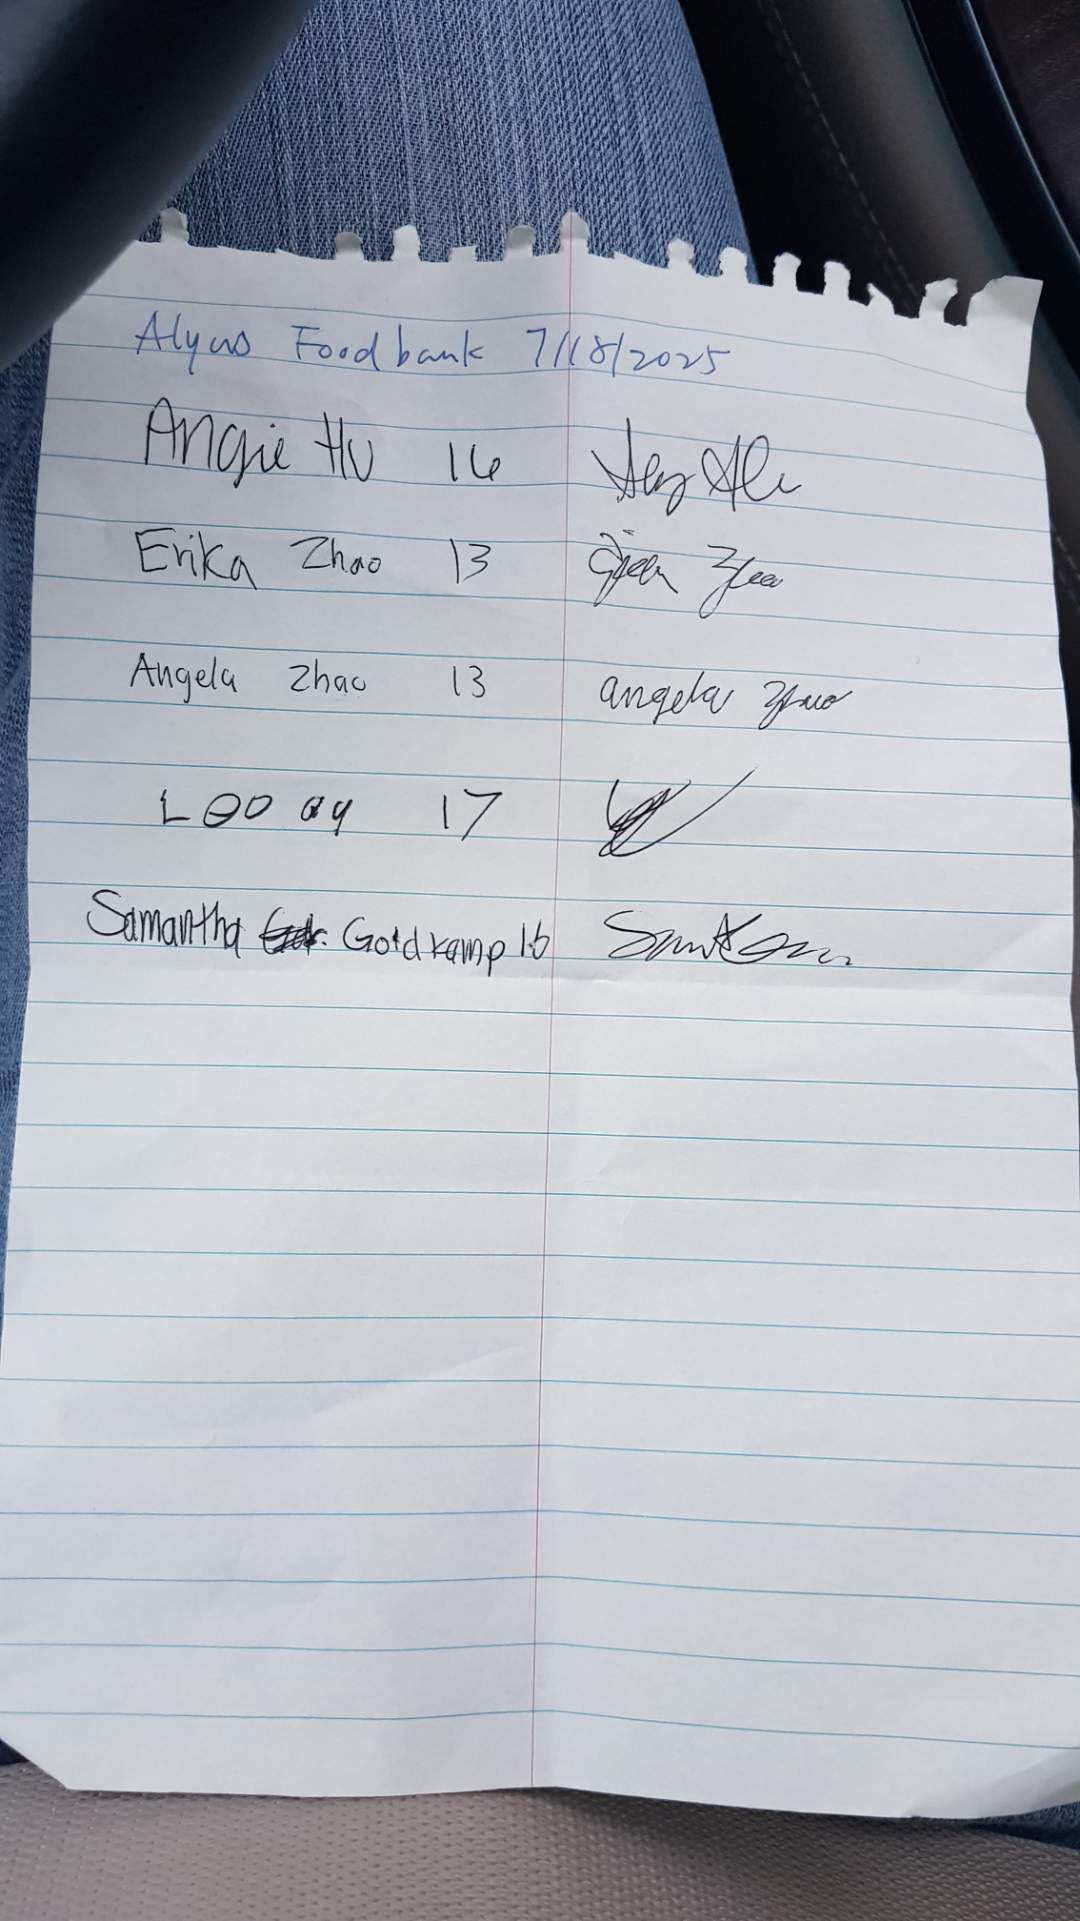 Foodbank 7/18/2025
Angie Hu 16
Erika Zhao 13
Angela Zhao 13 angela zhao
Leo 17
Samantha Goldkamp 16